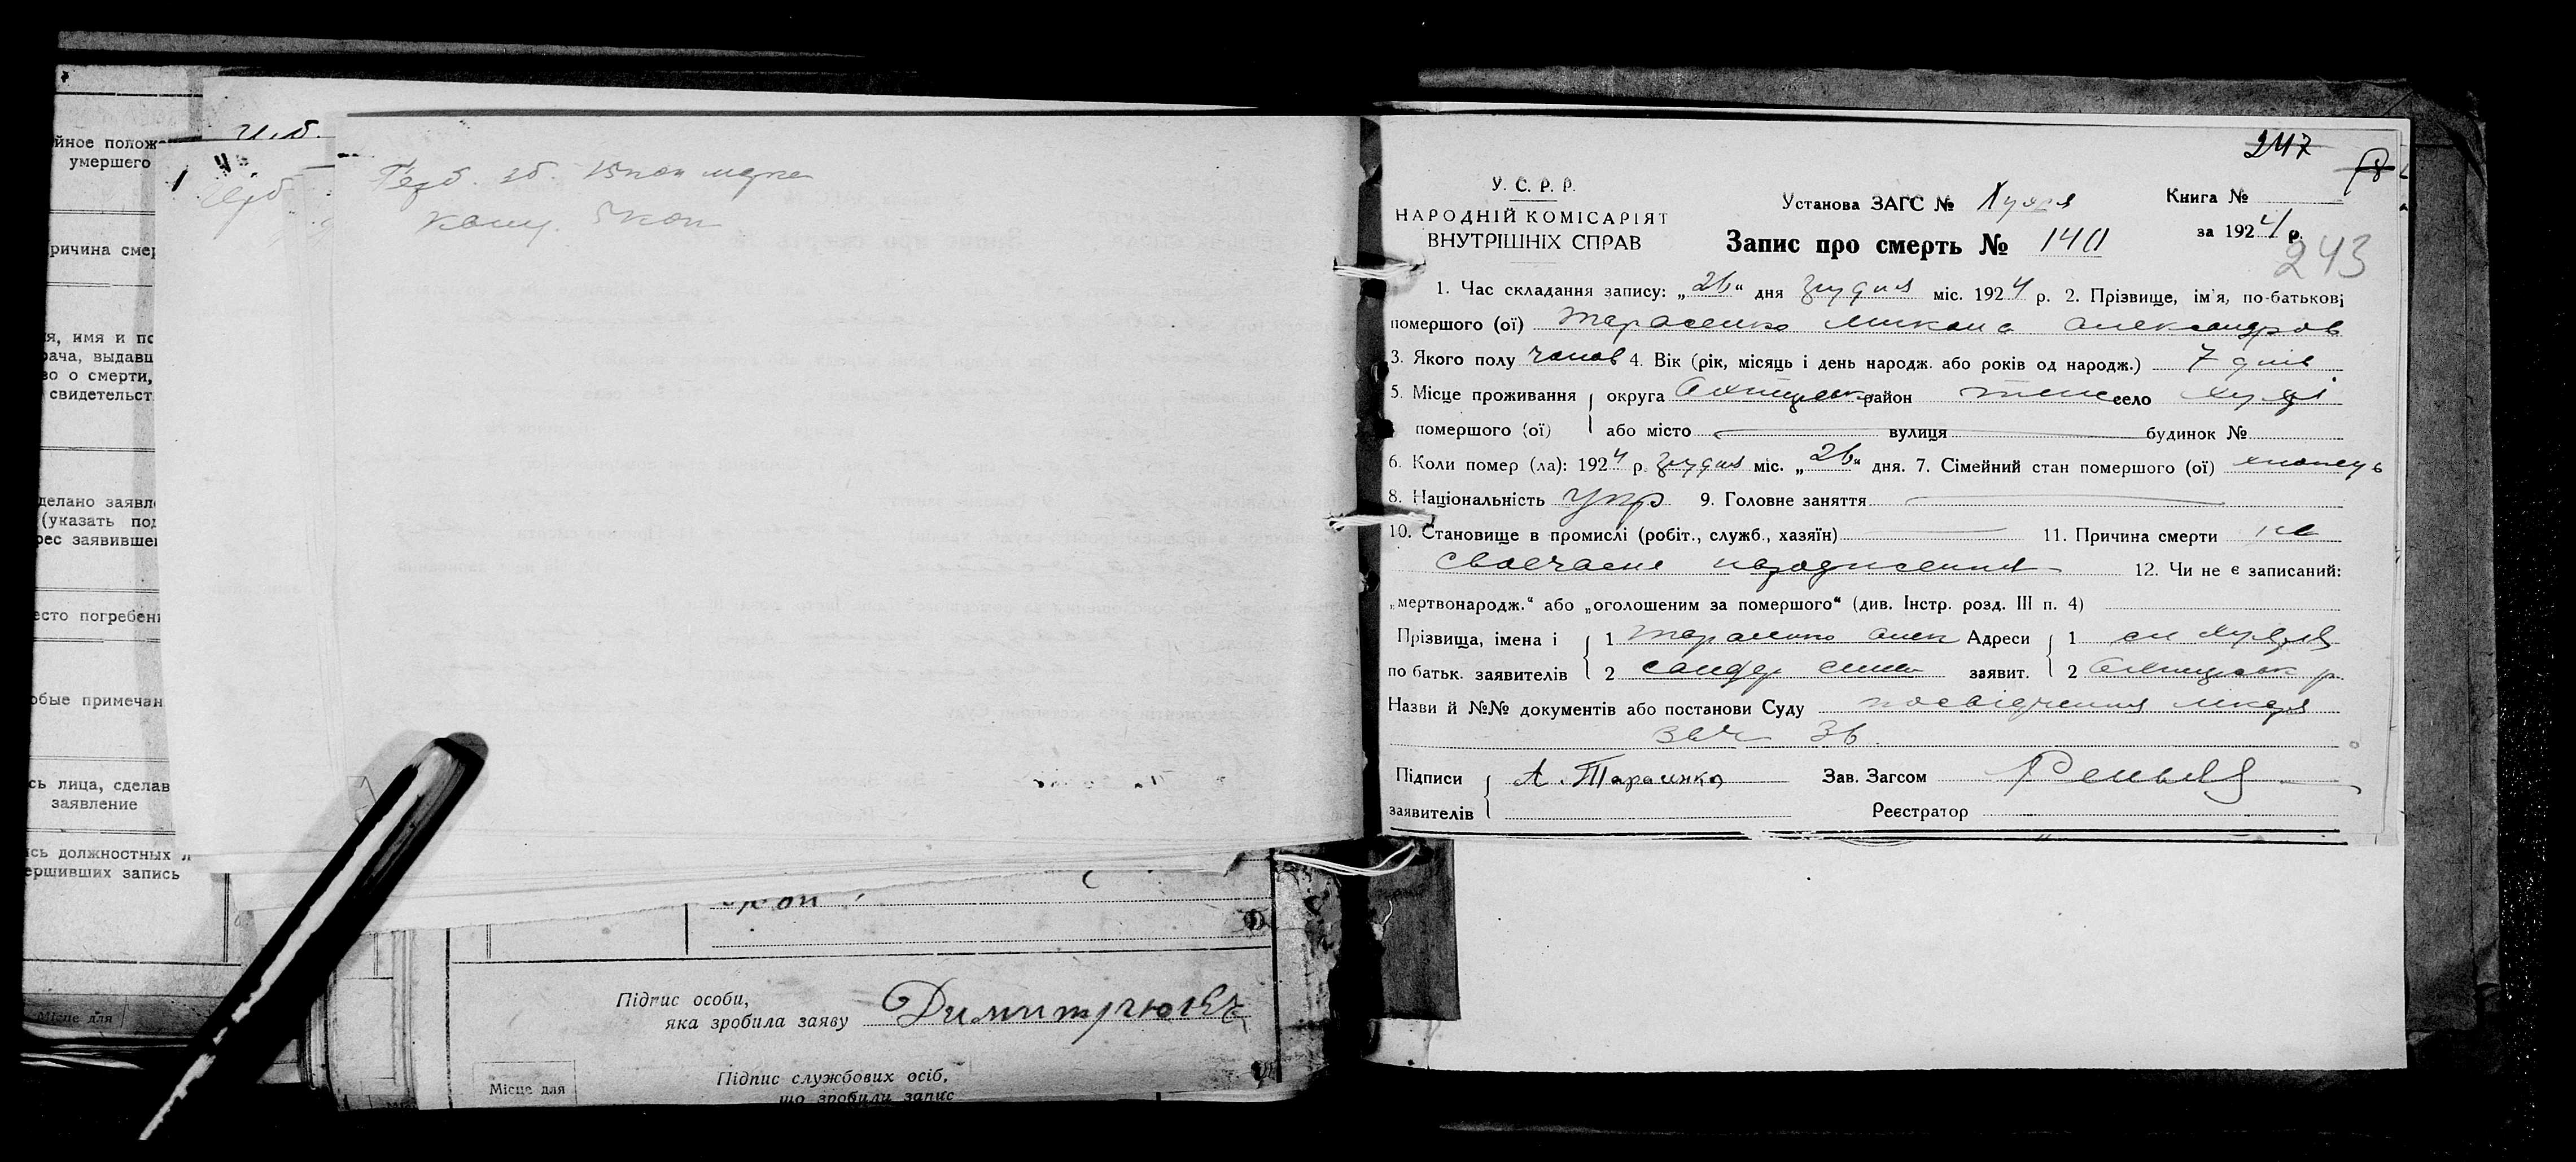 йное полож
умершего
ричина смер
я, имя и по
рача, выдавш
во о смерти,
свидетельст
делано заявле
(указать под
рес заявивше
есто погребени
обые примечан
сь лица, сделав
заявление
сь должностных л
ершивших запись
Місце для
Герб. зб. 15 коп марка
канц. 5 коп
Підпис особи,
яка зробила заяву
Місце для
Підпис службових осіб,
що зробили запис
247
У. С. Р. Р.
НАРОДНІЙ КОМІСАРІЯТ
ВНУТРІШНІХ СПРАВ
Установа ЗАГС №
Книга №
Запис про смерть № 140
за 1924 р.
243
1. Час складання запису: „26“ дня грудня міс. 1924 р. 2. Прізвище, ім'я, по-батькові
помершого (ої) Тарасенко Микола Олександров
3. Якого полу чолов 4. Вік (рік, місяць і день народж. або років од народж.) 7 днів
5. Місце проживання округа район село
помершого (ої) або місто вулиця будинок №
6. Коли помер (ла): 1924 р. грудня міс. „26“ дня. 7. Сімейний стан помершого (ої) хлопець
8. Національність укр 9. Головне заняття
10. Становище в промислі (робіт., служб., хазяїн) 11. Причина смерти не
своєчасне народження 12. Чи не є записаний:
„мертвонародж.“ або „оголошеним за помершого“ (див. Інстр. розд. III п. 4)
Прізвища, імена і 1 Тарасенко Олек Адреси 1
по батьк. заявителів 2 сандр заявит. 2
Назви й №№ документів або постанови Суду посвідчення лікаря
за № 36
Підписи А. Тарасенко Зав. Загсом
заявителів Реєстратор